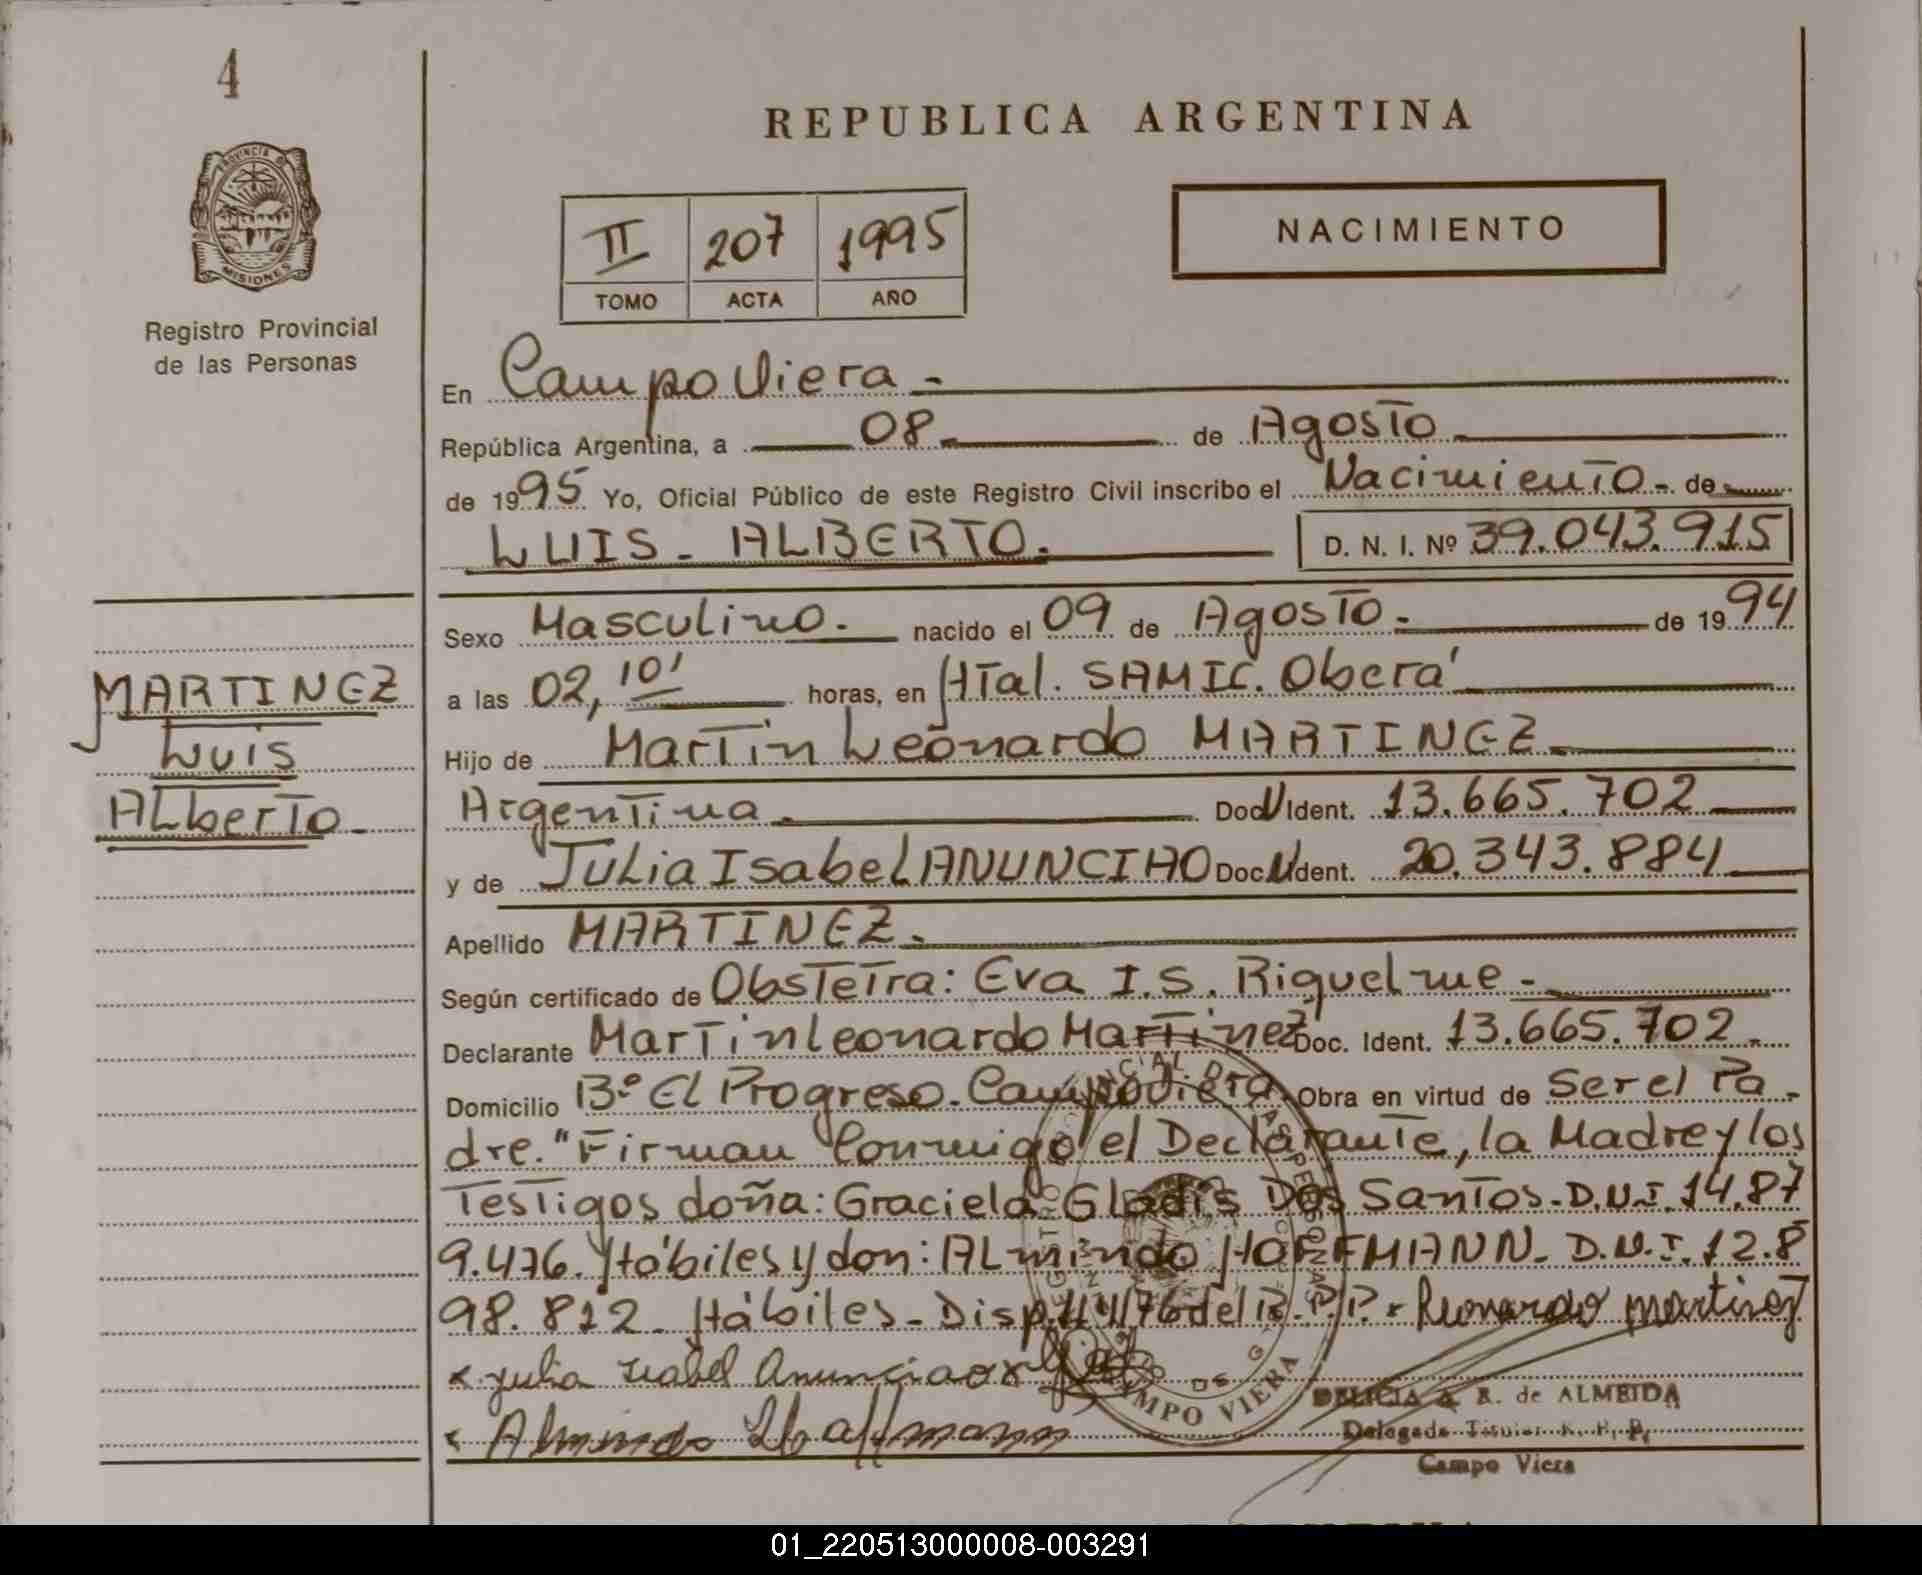 4
PROVINCIA DE
MISIONES
Registro Provincial
de las Personas
REPUBLICA ARGENTINA
II 207 1995
TOMO ACTA AÑO
NACIMIENTO
En Campo Viera -
República Argentina, a 08 de Agosto
de 1995 Yo, Oficial Público de este Registro Civil inscribo el Nacimiento - de
LUIS - ALBERTO. D. N. I. Nº 39.043.915
Sexo Masculino. nacido el 09 de Agosto. de 1994
a las 02, 10' horas, en Htal. SAMIC. Oberá
Hijo de Martin Leonardo MARTINEZ
Argentina Doc N Ident. 13.665.702
y de Julia Isabel ANUNCIAO Doc. N Ident. 20.343.884
Apellido MARTINEZ.
Según certificado de Obstetra: Eva I.S. Riquelme -
Declarante Martin Leonardo Martinez Doc. Ident. 13.665.702.
Domicilio Bº El Progreso. Campo Viera. Obra en virtud de Ser el Pa-
dre." Firman Conmigo el Declarante, la Madre y los
Testigos doña: Graciela Gladis Dos Santos - D.N.I. 14.87
9.476. Hábiles y don: ALmindo HOFFMANN - D.N.I. 12.8
98.812 - Hábiles - Disp. 44/76 del R.P.P. x Leonardo Martinez
x Julia Isabel Anunciao x
x Almindo Hoffmann
CAMPO VIERA
DELICIA A. R. de ALMEIDA
Delegada Titular R. P. P.
Campo Viera
MARTINEZ
Luis
ALberto -
01_220513000008-003291